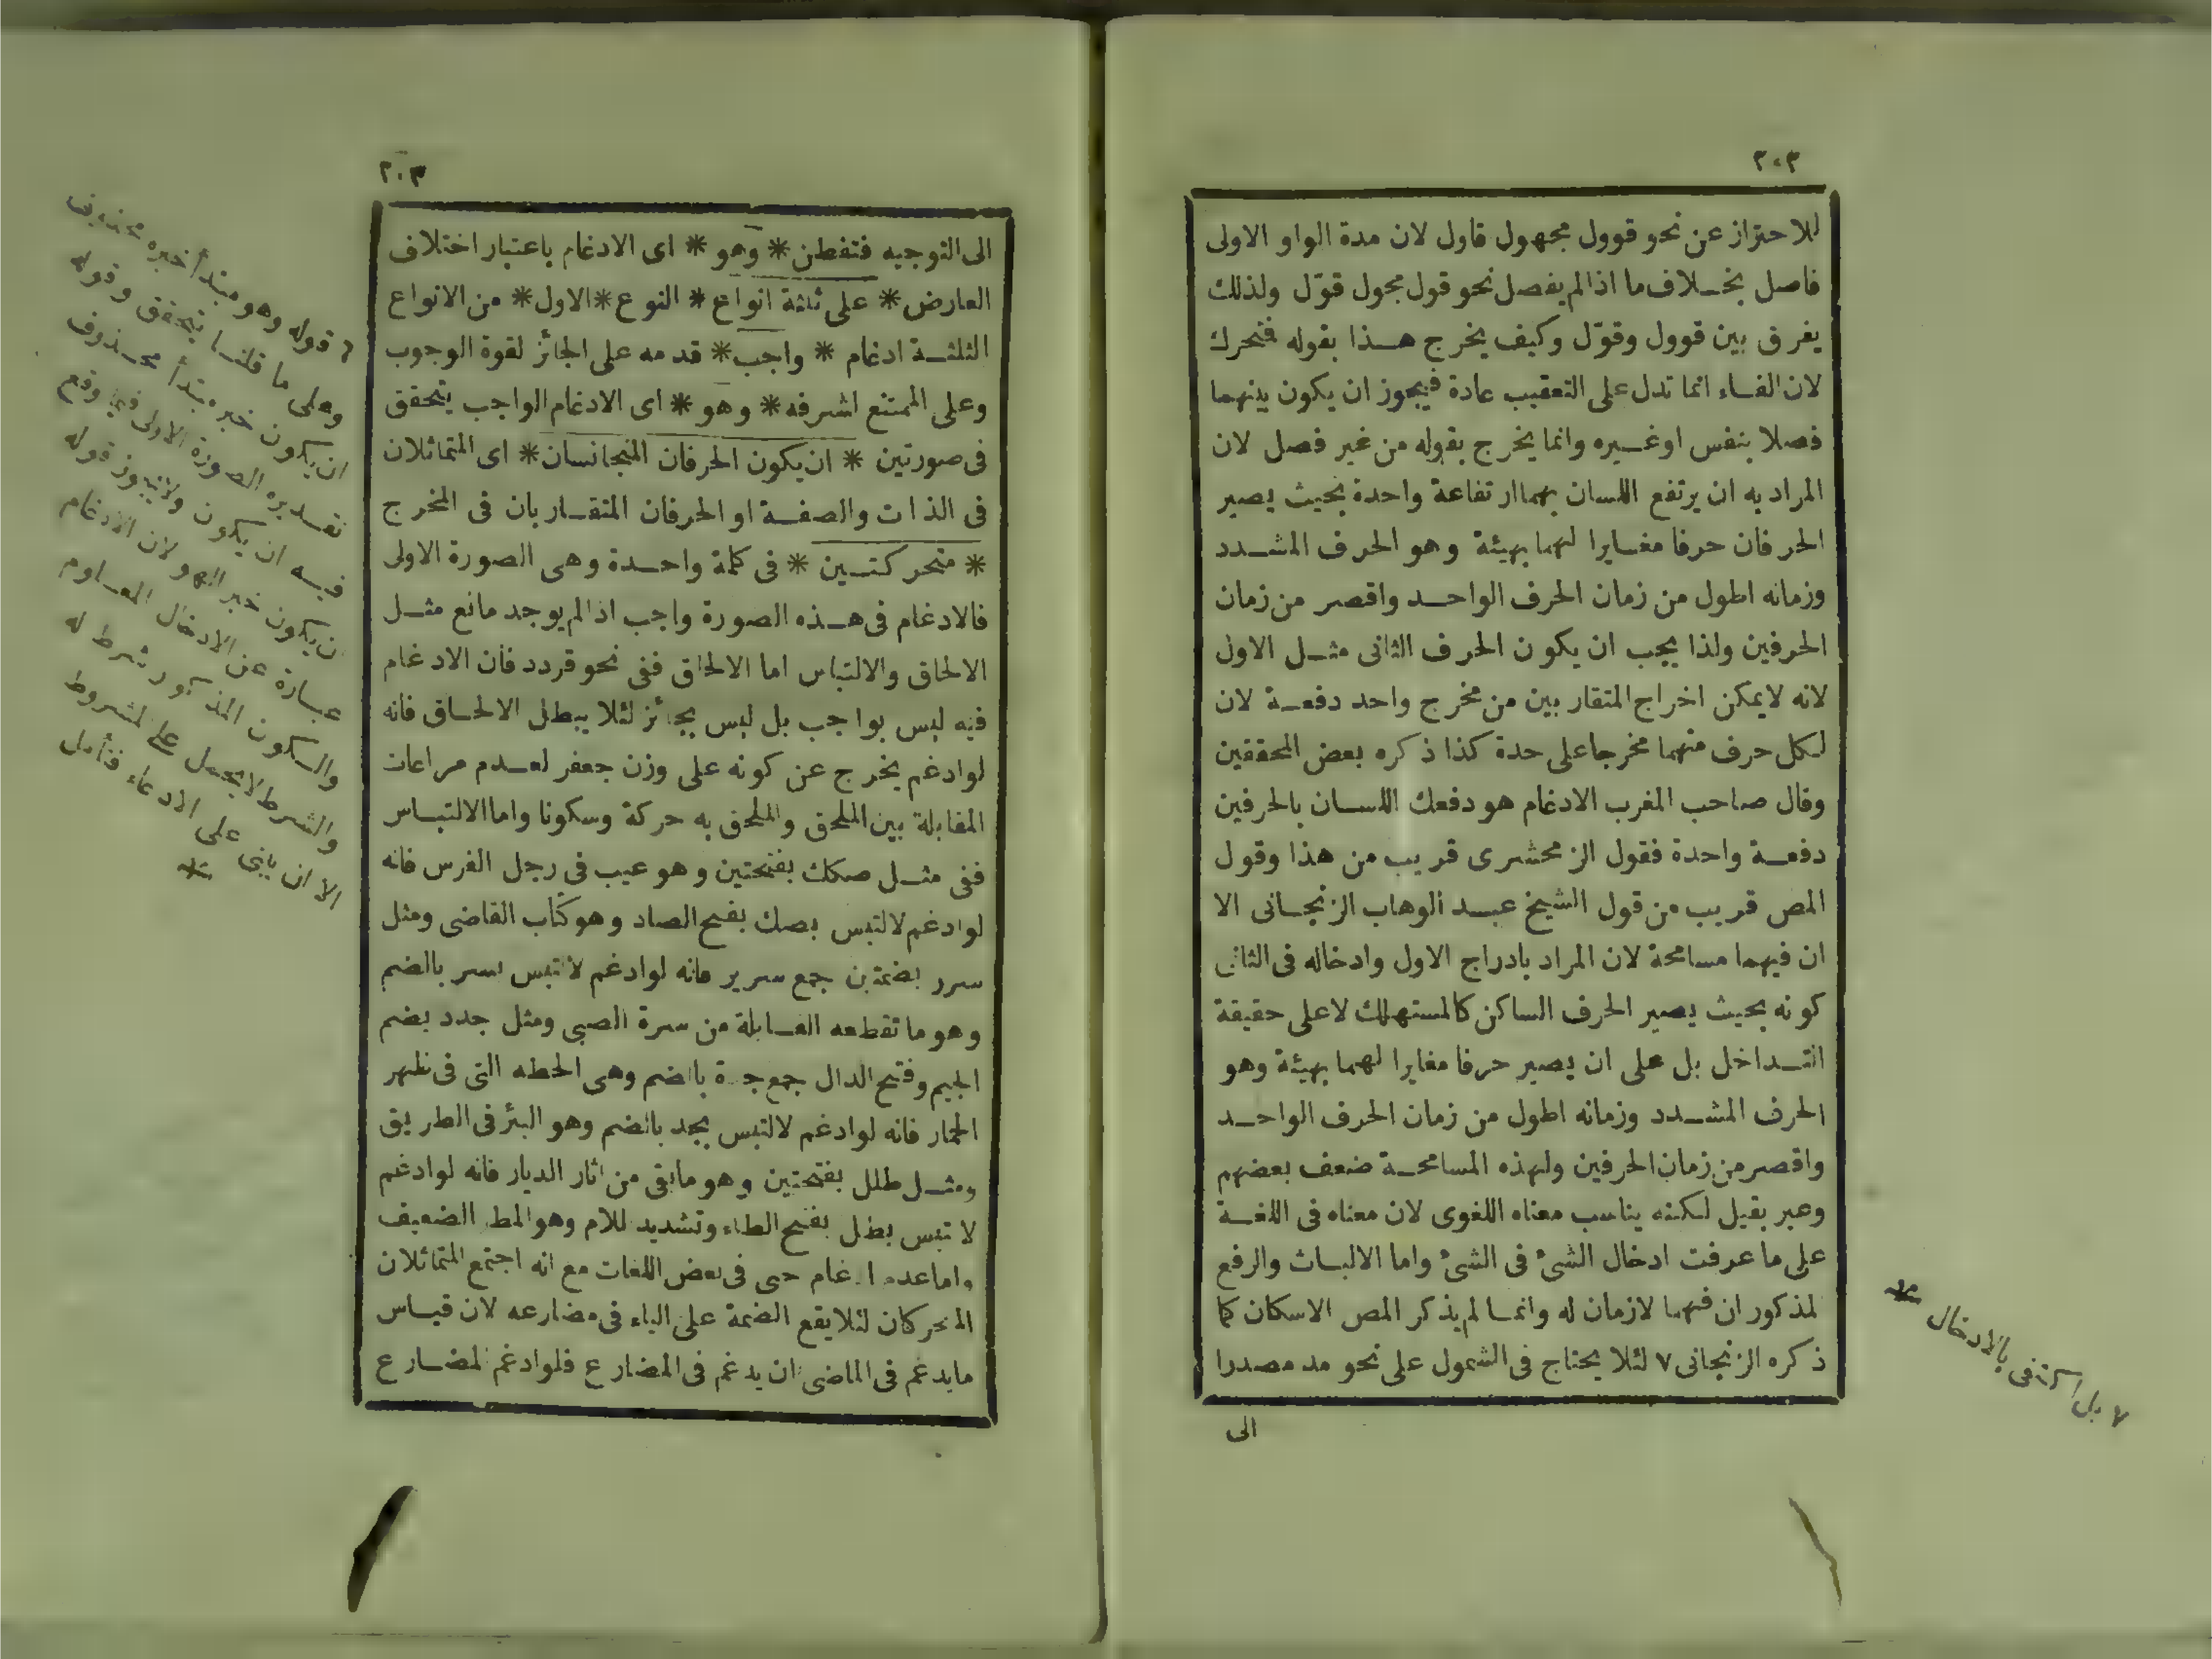 ٢٠٣
للاحتراز عن نحو قوول مجهول قاول لان مدة الواو الاولى
فاصل بخلاف ما اذا لم يفصل نحو قول مجول قوّل ولذلك
يفرق بين قوول وقوّل وكيف يخرج هذا بقوله فتحرك
لان الفاء انما تدل على التعقيب عادة فيجوز ان يكون بينهما
فصلا بنفس او غيره وانما يخرج بقوله من غير فصل لان
المراد به ان يرتفع اللسان بهما ارتفاعة واحدة بحيث يصير
الحرفان حرفا مغايرا لهما بهيئة وهو الحرف المشدد
وزمانه اطول من زمان الحرف الواحد واقصر من زمان
الحرفين ولذا يجب ان يكون الحرف الثانى مثل الاول
لانه لايمكن اخراج المتقاربين من مخرج واحد دفعة لان
لكل حرف منهما مخرجا على حدة كذا ذكره بعض المحققين
وقال صاحب المغرب الادغام هو دفعك اللسان بالحرفين
دفعة واحدة فقول الزمحشرى قريب من هذا وقول
المص قريب من قول الشيخ عبد الوهاب الزنجانى الا
ان فيهما مسامحة لان المراد بادراج الاول وادخاله فى الثانى
كونه بحيث يصير الحرف الساكن كالمستهلك لاعلى حقيقة
التداخل بل على ان يصير حرفا مغايرا لهما بهيئة وهو
الحرف المشدد وزمانه اطول من زمان الحرف الواحد
واقصر من زمان الحرفين ولهذه المسامحة ضعف بعضهم
وعبر بقيل لكنه يناسب معناه اللغوى لان معناه فى اللغة
على ما عرفت ادخال الشئ فى الشئ واما الالباث والرفع
لمذكور ان فهما لازمان له وانما لم يذكر المص الاسكان كما
ذكره الزنجانى ٧ لئلا يحتاج فى الشمول على نحو مد مصدرا
الى
٧ بل اكتفى بالادخال
٢٠٣
الى التوجيه فتفطن * وهو * اى الادغام باعتبار اختلاف
العارض * على ثلثة انواع * النوع * الاول * من الانواع
الثلثة ادغام * واجب * قدمه على الجائز لقوة الوجوب
وعلى الممتنع اشرفه * وهو * اى الادغام الواجب يتحقق
فى صورتين * ان يكون الحرفان المتجانسان * اى المتماثلان
فى الذات والصفة او الحرفان المتقاربان فى المخرج
* متحركتين * فى كلمة واحدة وهى الصورة الاولى
فالادغام فى هذه الصورة واجب اذا لم يوجد مانع مثل
الالحاق والالتباس اما الالحاق ففى نحو قردد فان الادغام
فيه ليس بواجب بل ليس بجائز لئلا يبطل الالحاق فانه
لوادغم يخرج عن كونه على وزن جعفر لعدم مراعات
المقابلة بين الملحق والملحق به حركة وسكونا واما الالتباس
ففى مثل صكك بفتحتين وهو عيب فى رجل الفرس فانه
لوادغم لالتبس بصك بفتح الصاد وهو كتاب القاضى ومثل
سرر بضمتين جمع سرير فانه لوادغم لالتبس بسر بالضم
وهو ما تقطعه القابلة من سرة الصبى ومثل جدد بضم
الجيم وفتح الدال جمع جدة بالضم وهى الخطه التى فى ظهر
الحمار فانه لوادغم لالتبس بجد بالضم وهو البئر فى الطريق
ومثل طلل بفتحتين وهو مابقى من اثار الديار فانه لوادغم
لا تبس بطل بفتح الطاء وتشديد للام وهو المطر الضعيف
واما عدم ادغام حيى فى بعض اللغات مع انه اجتمع المتماثلان
المتحركان لئلا يقع الضمة على الياء فى مضارعه لان قياس
مايدغم فى الماضى ان يدغم فى المضارع فلوادغم لمضارع
٢ قوله وهو مبتدأ خبره محذوف
وعلى ما قلنا يتحقق وقوله
ان يكون خبره مبتدأ محذوف
تقديره الصورة الاولى فيما وقع
فيه ان يكون ولايجوز قوله
ن يكون خبر الهو لان الادغام
عبارة عن الادخال المعلوم
والسكون المذكور شرط له
والشرط لايحمل على المشروط
الا ان يبنى على الادعاء فتأمل